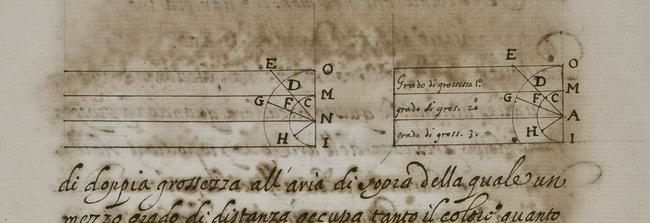 E
D
G F C
H
O
M
N
I
Grado di grossezza 1º
grado di gros. 2º
grado di gross. 3.
E
D
G F C
H
O
M
A
I
di doppia grossezza all'aria di sopra della quale un
mezzo grado di distanza occupa tanto il colore quanto